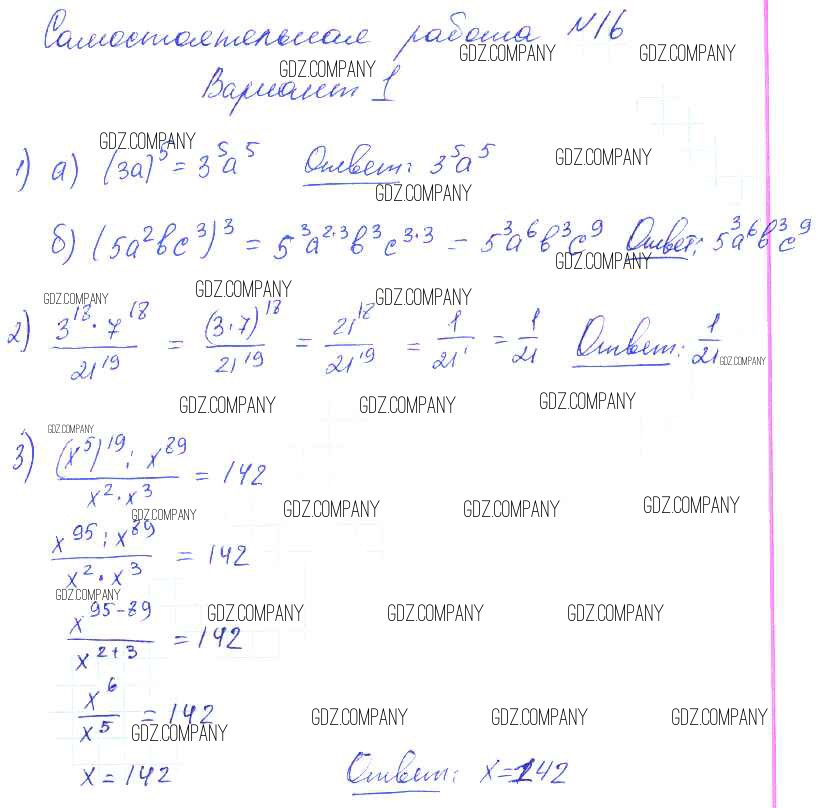 Самостоятельная работа №16
GDZ.COMPANY GDZ.COMPANY GDZ.COMPANY
Вариант 1
GDZ.COMPANY GDZ.COMPANY
1) а) (3a)^5 = 3^5a^5 Ответ: 3^5a^5
GDZ.COMPANY
б) (5a^2bc^3)^3 = 5^3a^{2·3}b^3c^{3·3} = 5^3a^6b^3c^9 Ответ: 5^3a^6b^3c^9
GDZ.COMPANY
GDZ.COMPANY GDZ.COMPANY GDZ.COMPANY
2) (3^18 · 7^18)/21^19 = (3·7)^18/21^19 = 21^18/21^19 = 1/21^1 = 1/21 Ответ: 1/21
GDZ.COMPANY
GDZ.COMPANY GDZ.COMPANY GDZ.COMPANY
GDZ.COMPANY
3) ((x^5)^19 : x^89)/(x^2 · x^3) = 142
GDZ.COMPANY GDZ.COMPANY GDZ.COMPANY GDZ.COMPANY
(x^95 : x^89)/(x^2 · x^3) = 142
GDZ.COMPANY GDZ.COMPANY GDZ.COMPANY GDZ.COMPANY
x^{95-89}/x^{2+3} = 142
x^6/x^5 = 142
GDZ.COMPANY GDZ.COMPANY GDZ.COMPANY GDZ.COMPANY
x = 142 Ответ: x=142